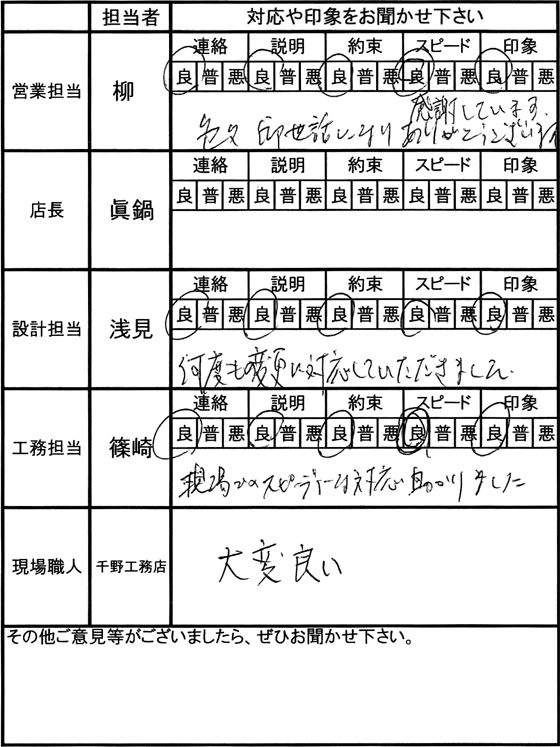 担当者 対応や印象をお聞かせ下さい
営業担当 柳
連絡 説明 約束 スピード 印象
良 普 悪 良 普 悪 良 普 悪 良 普 悪 良 普 悪
感謝しています.
色々御世話になりありがとうございます
店長 眞鍋
連絡 説明 約束 スピード 印象
良 普 悪 良 普 悪 良 普 悪 良 普 悪 良 普 悪
設計担当 浅見
連絡 説明 約束 スピード 印象
良 普 悪 良 普 悪 良 普 悪 良 普 悪 良 普 悪
何度も変更に対応していただきました.
工務担当 篠崎
連絡 説明 約束 スピード 印象
良 普 悪 良 普 悪 良 普 悪 良 普 悪 良 普 悪
現場でのスピーディーな対応助かりました
現場職人 千野工務店
大変良い
その他ご意見等がございましたら、ぜひお聞かせ下さい。